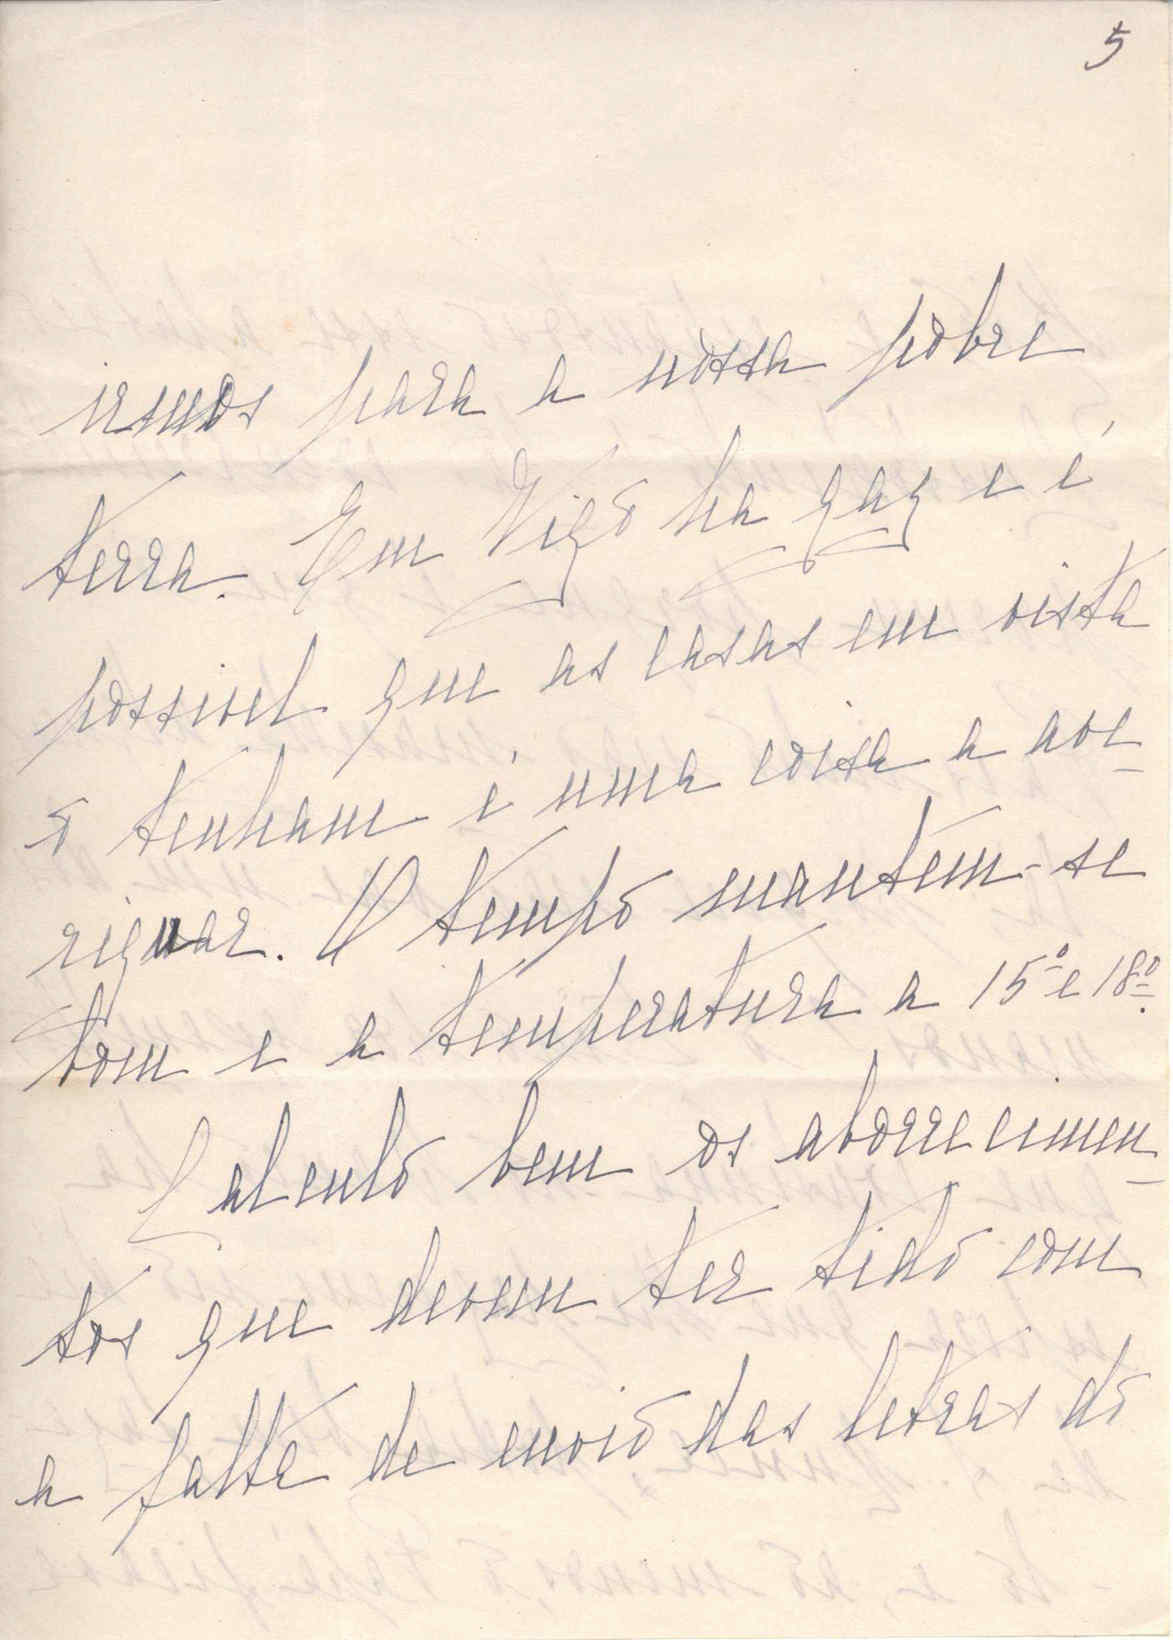 5
irmos para a nossa pobre
terra. Em Vigo ha gaz e é
possivel que as casas em vista
o tenham é uma coisa a ave-
riguar. O tempo mantem-se
bom e a temperatura a 15º e 18º.
Calculo bem os aborrecimen-
tos que devem ter tido com
a falta de envio das letras do